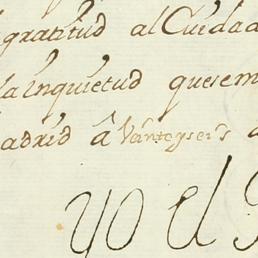 gratitud al Cuidad
la Inquietud que sem
adrid â Veinteyseis d
yo el R